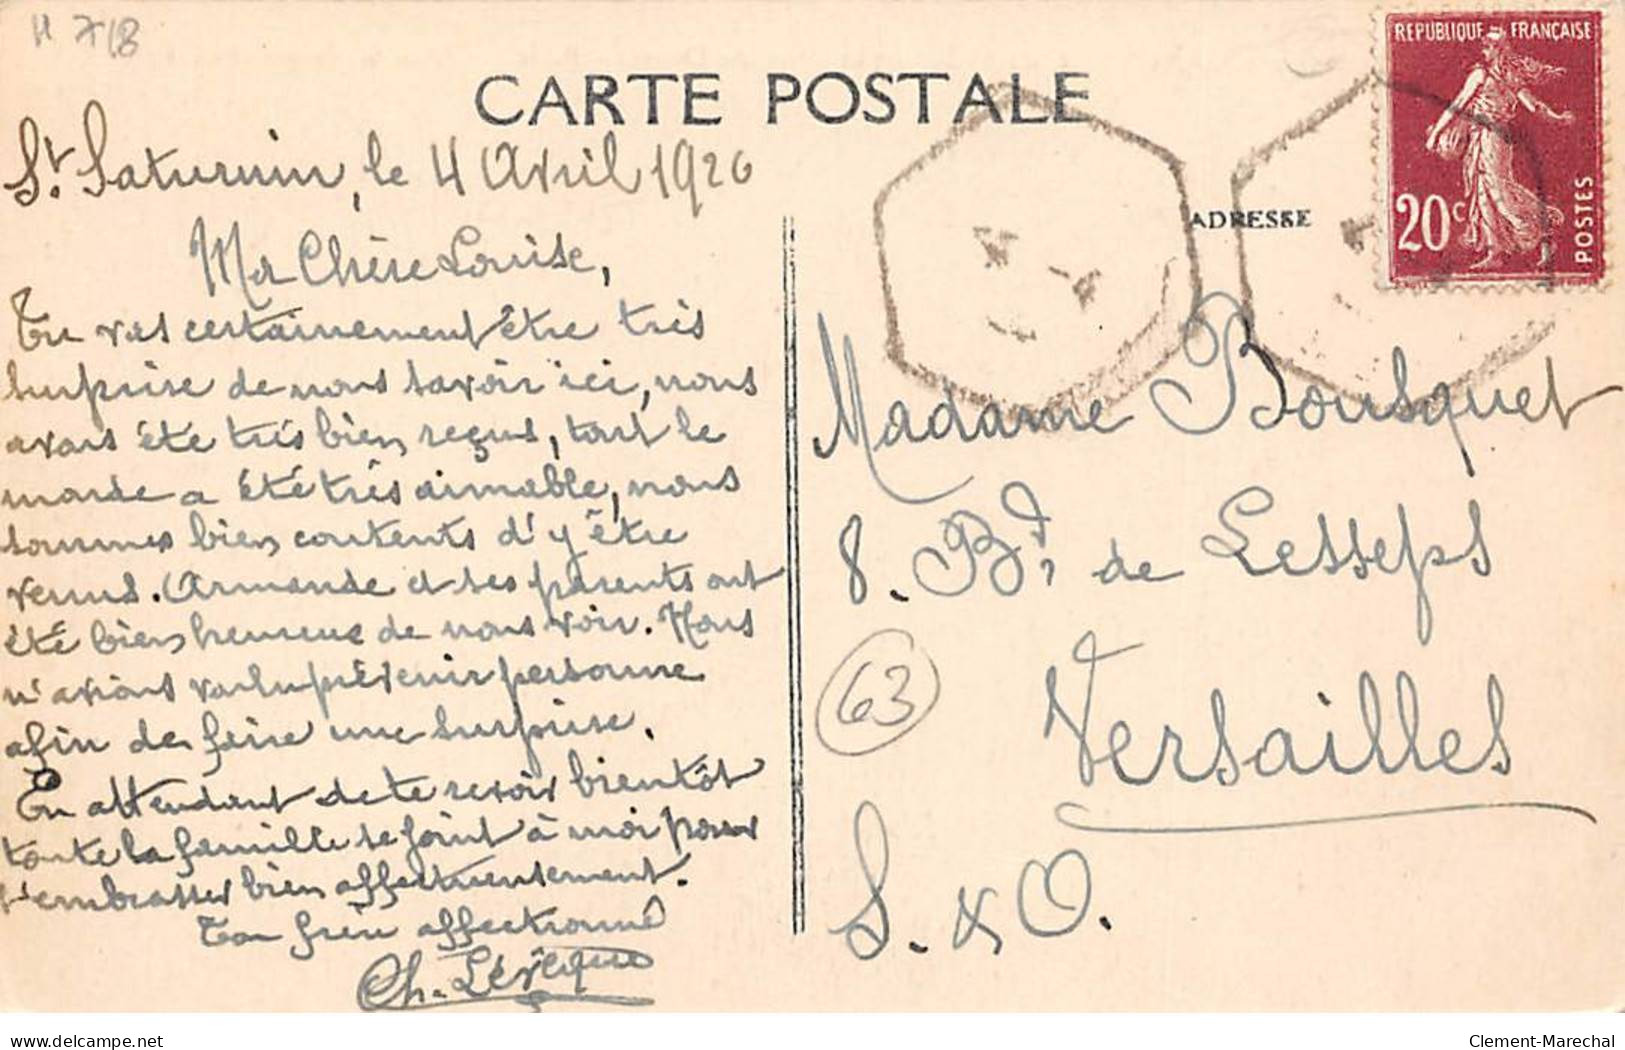 H 718
CARTE POSTALE
REPUBLIQUE FRANÇAISE
20c
POSTES
ADRESSE
St Saturnin, le 4 Avril 1926
Ma Chère Louise,
Tu vas certainement être très
surprise de nous savoir ici, nous
avons été très bien reçus, tout le
monde a été très aimable, nous
sommes bien contents d'y être
venus. Armande et ses parents ont
été bien heureux de nous voir. Nous
n'avions voulu prévenir personne
afin de faire une surprise.
En attendant de te revoir bientôt
toute la famille se joint à moi pour
t'embrasser bien affectueusement.
Ton frère affectionné
Ch. Lévêque
Madame Bousquet
8. Bd de Lesseps
63
Versailles
S. & O.
delcampe.net
Clement-Marechal